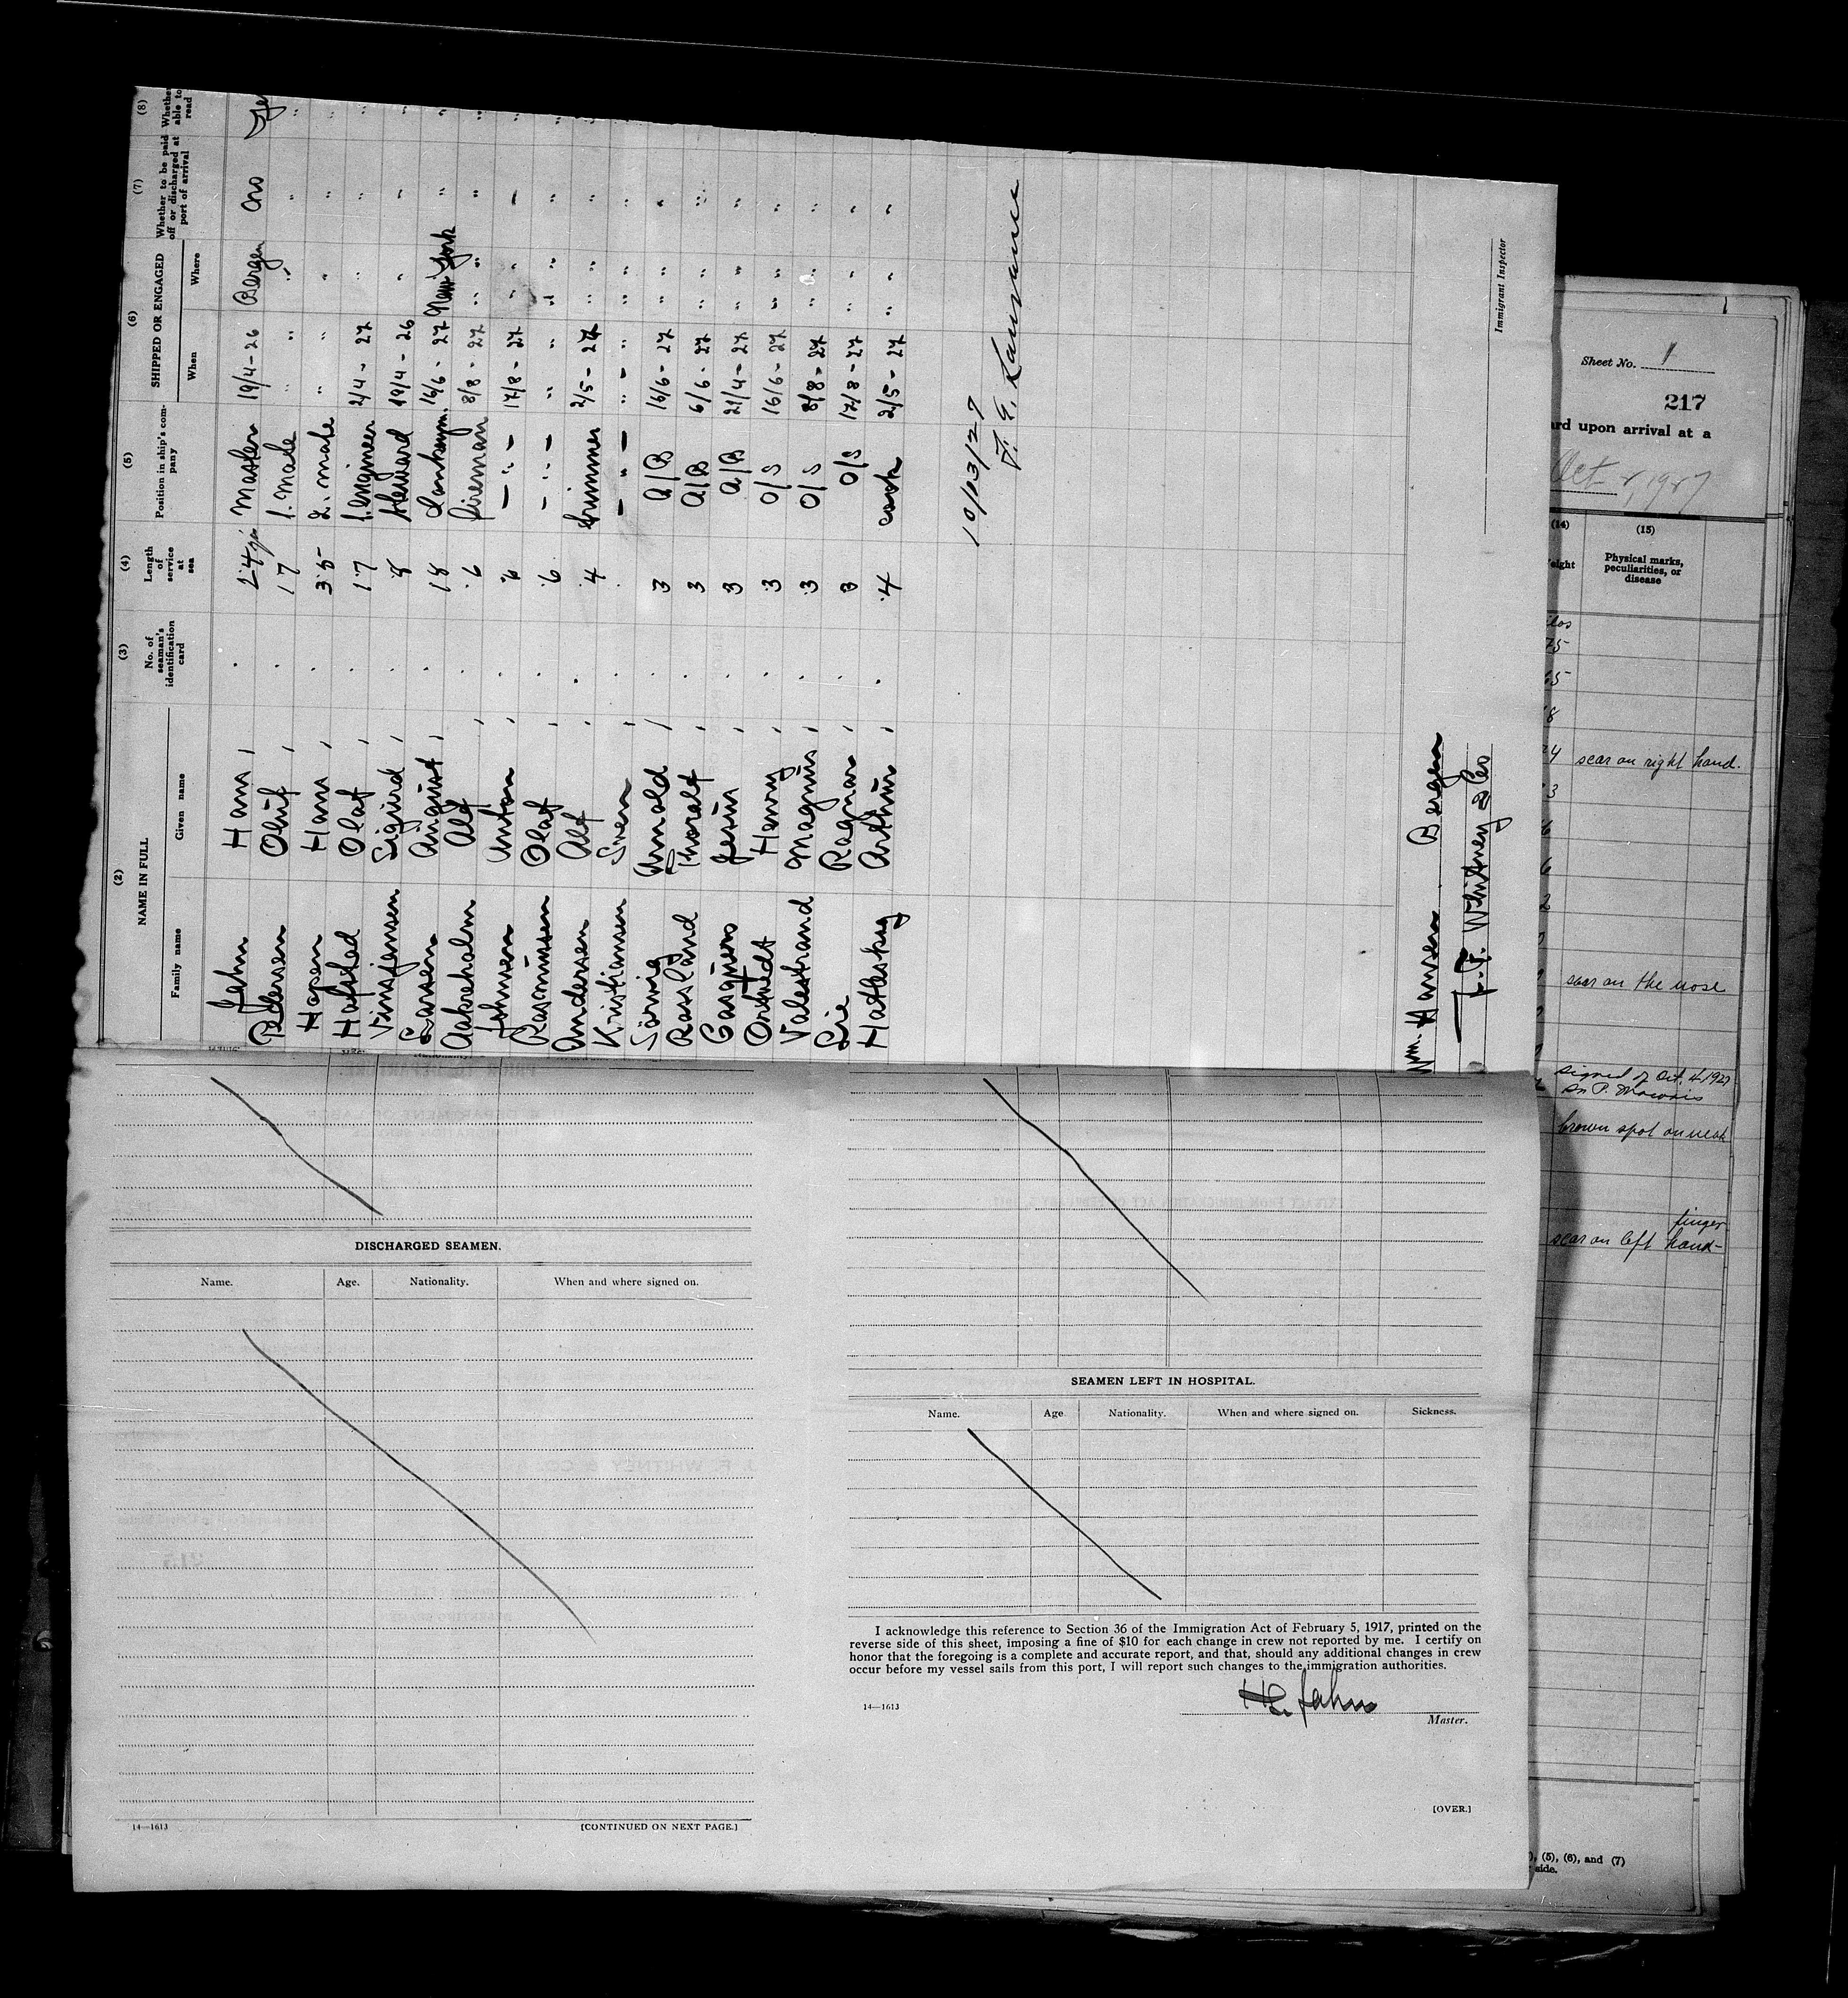 (2)
NAME IN FULL
Family name
Given name
(3)
No. of seaman's identification card
(4)
Length of service at sea
(5)
Position in ship's company
(6)
SHIPPED OR ENGAGED
When
Where
(7)
Whether to be paid off or discharged at port of arrival
(8)
Whether able to read
Jahn Hans 24 Master 19/4-26 Bergen
Pedersen Oluf 17 1. mate " "
Hopen Hans 35 2. mate " "
Olaf 17 1. engineer 2/4-27 "
Sigurd 8 Steward 19/4-26 "
Larsen August 18 16/6-27 New York
Aakreholm Alf 6 fireman 8/8-27 "
Johnsen Anton 6 - " - 17/8-27 "
Rasmussen Olaf 6 - " - " "
Andersen Alf 4 trimmer 2/5-27 "
Kristiansen Sven - " - - " "
Arnold 3 A/B 16/6-27 "
Rossland Thoralf 3 A/B 6/6-27 "
3 A/B 21/4-27 "
Henry 3 O/S 16/6-27 "
Valestrand Magnus 3 O/S 8/8-27 "
Lie Ragnar 3 O/S 17/8-27 "
Arthur 4 cook 2/5-27 "
10/03/27
Wm. Hansen Bergen
J. F. Whitney & Co
Immigrant Inspector
DISCHARGED SEAMEN.
Name. Age. Nationality. When and where signed on.
14—1613
[CONTINUED ON NEXT PAGE.]
SEAMEN LEFT IN HOSPITAL.
Name. Age Nationality. When and where signed on. Sickness.
I acknowledge this reference to Section 36 of the Immigration Act of February 5, 1917, printed on the
reverse side of this sheet, imposing a fine of $10 for each change in crew not reported by me. I certify on
honor that the foregoing is a complete and accurate report, and that, should any additional changes in crew
occur before my vessel sails from this port, I will report such changes to the immigration authorities.
14—1613
Master.
[OVER.]
Sheet No. 1
217
ard upon arrival at a
(14)
(15)
Physical marks,
peculiarities, or
disease
scar on right hand.
scar on the nose
signed Oct. 4-1927
brown spot on neck
finger
scar on left hand-
(5), (6), and (7)
side.